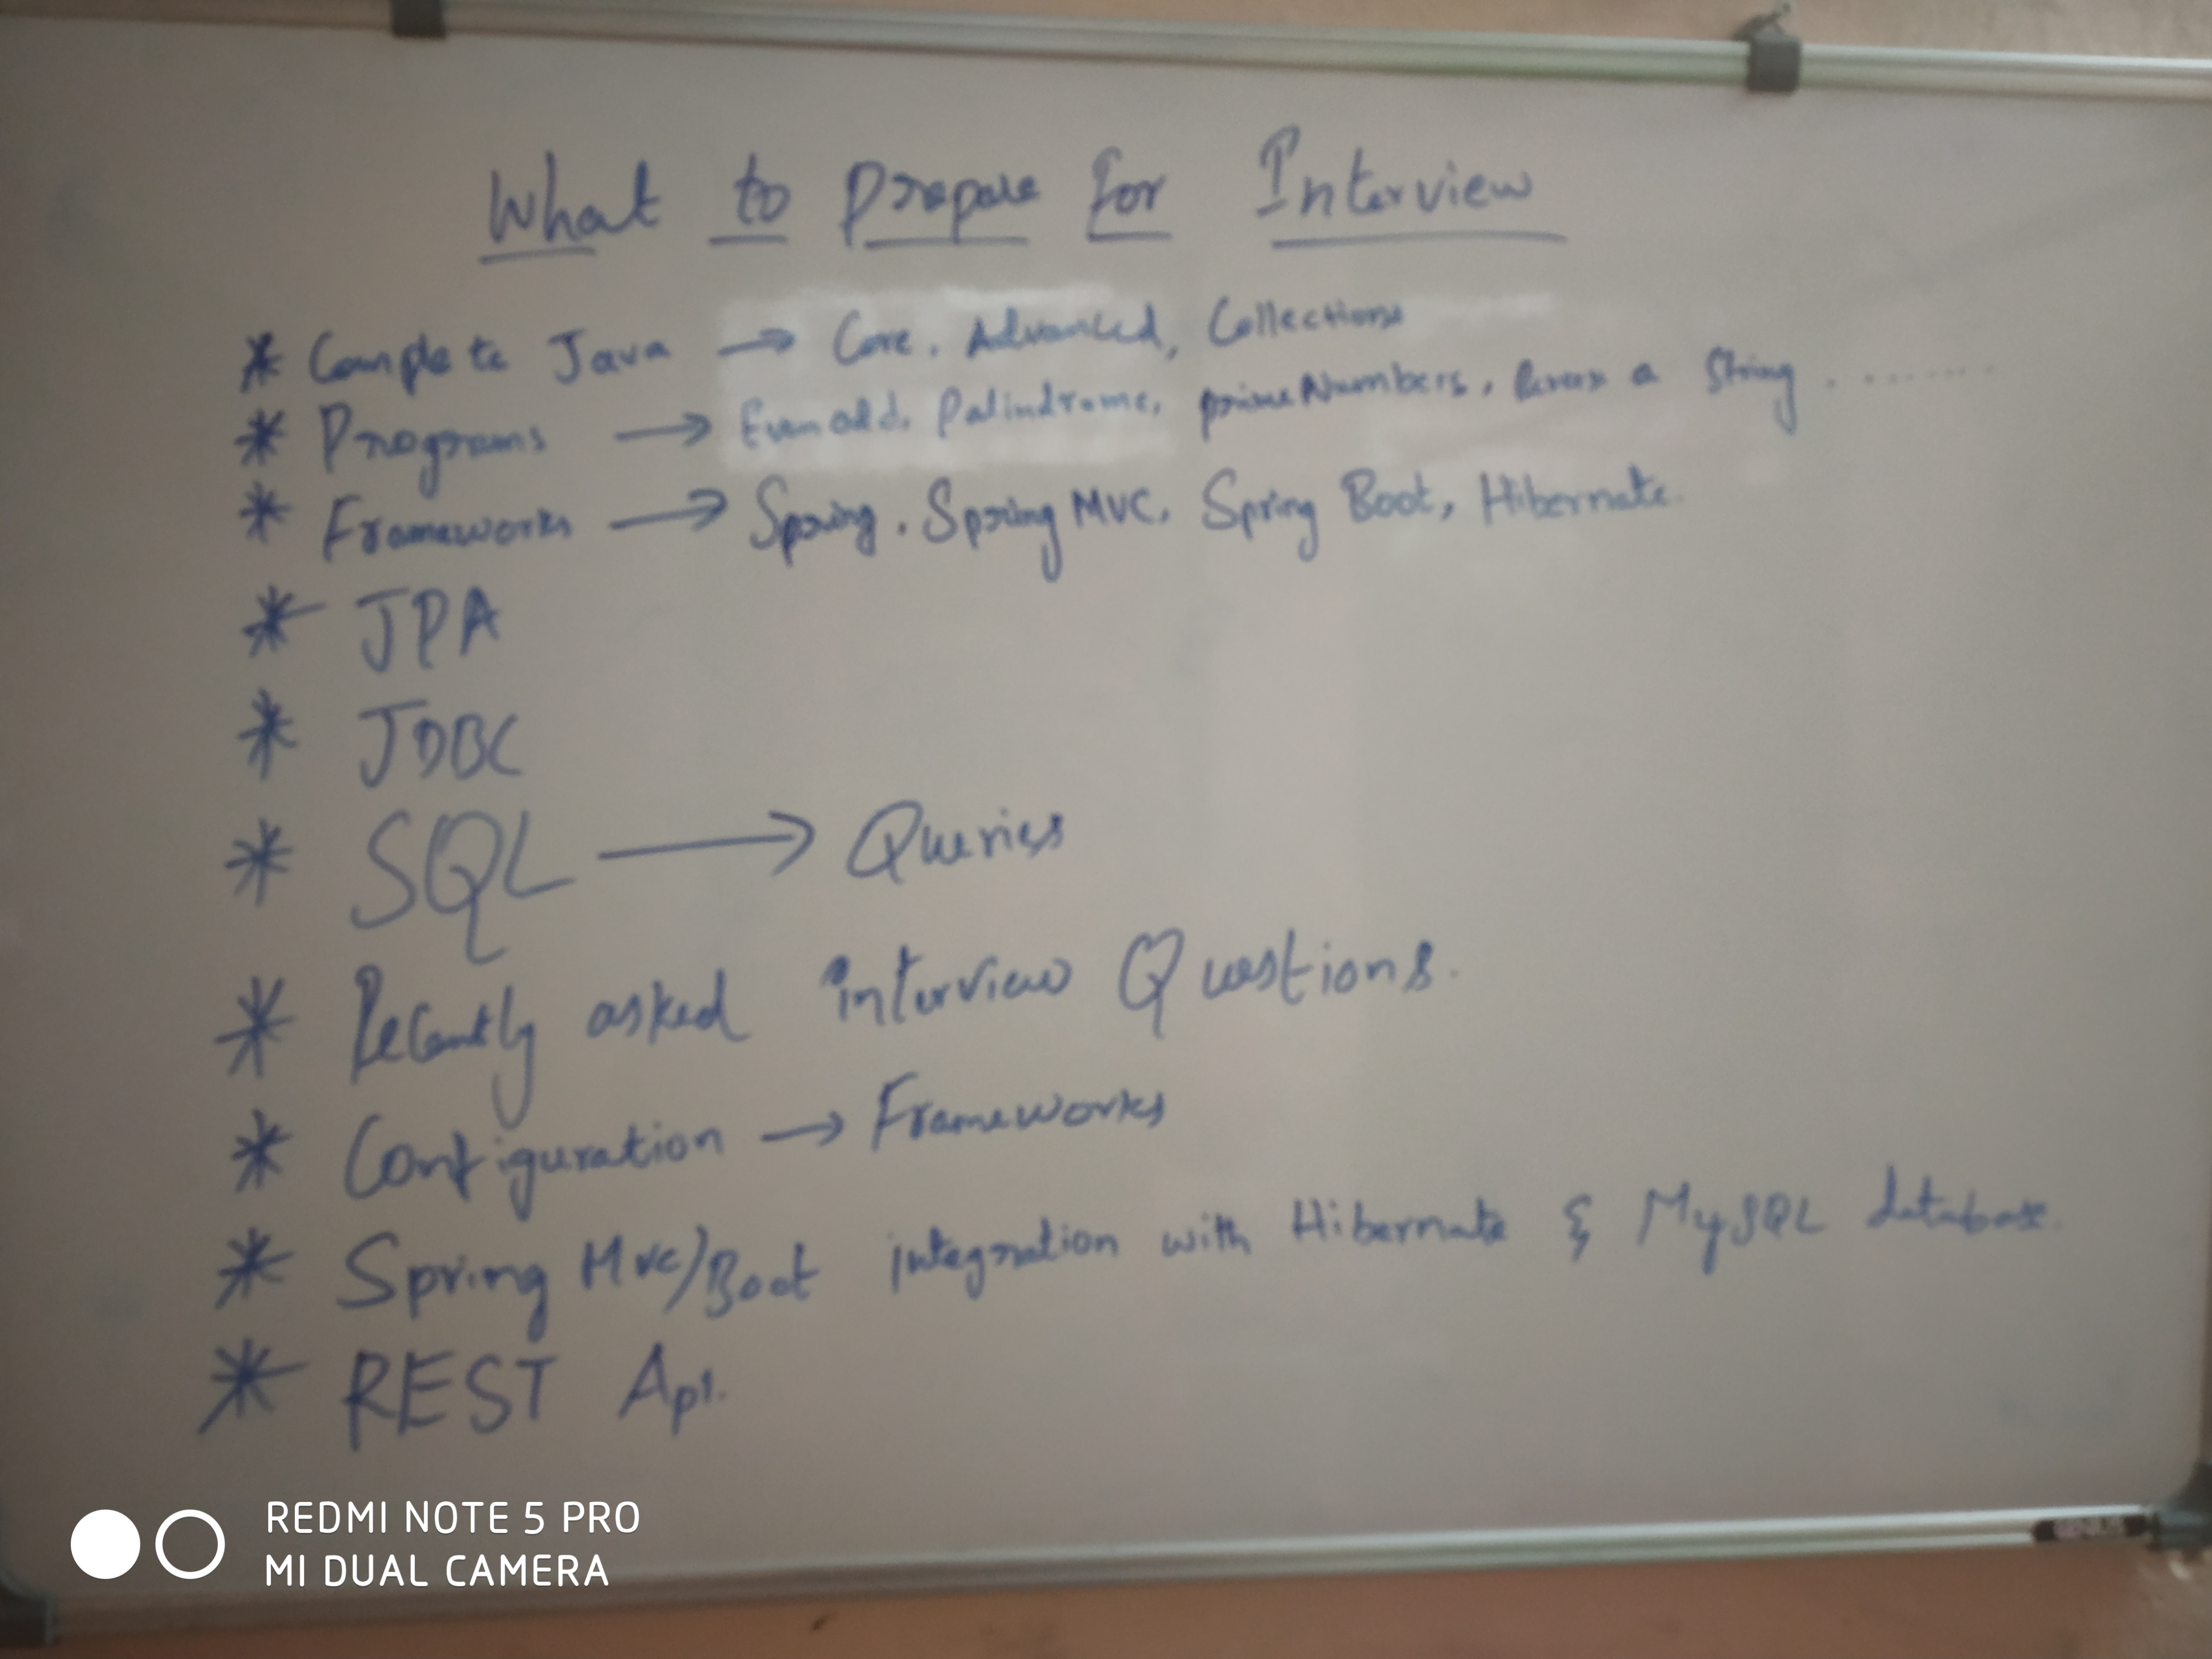 What to Prepare for Interview
* Complete Java → Core, Advanced, Collections
* Programs → Even odd, Palindrome, prime Numbers, a String ........
* Frameworks → Spring, Spring MVC, Spring Boot, Hibernate.
* JPA
* JDBC
* SQL → Queries
* Recently asked interview Questions.
* Configuration → Frameworks
* Spring Mvc/Boot integration with Hibernate & MySQL database.
* REST Api.
REDMI NOTE 5 PRO
MI DUAL CAMERA